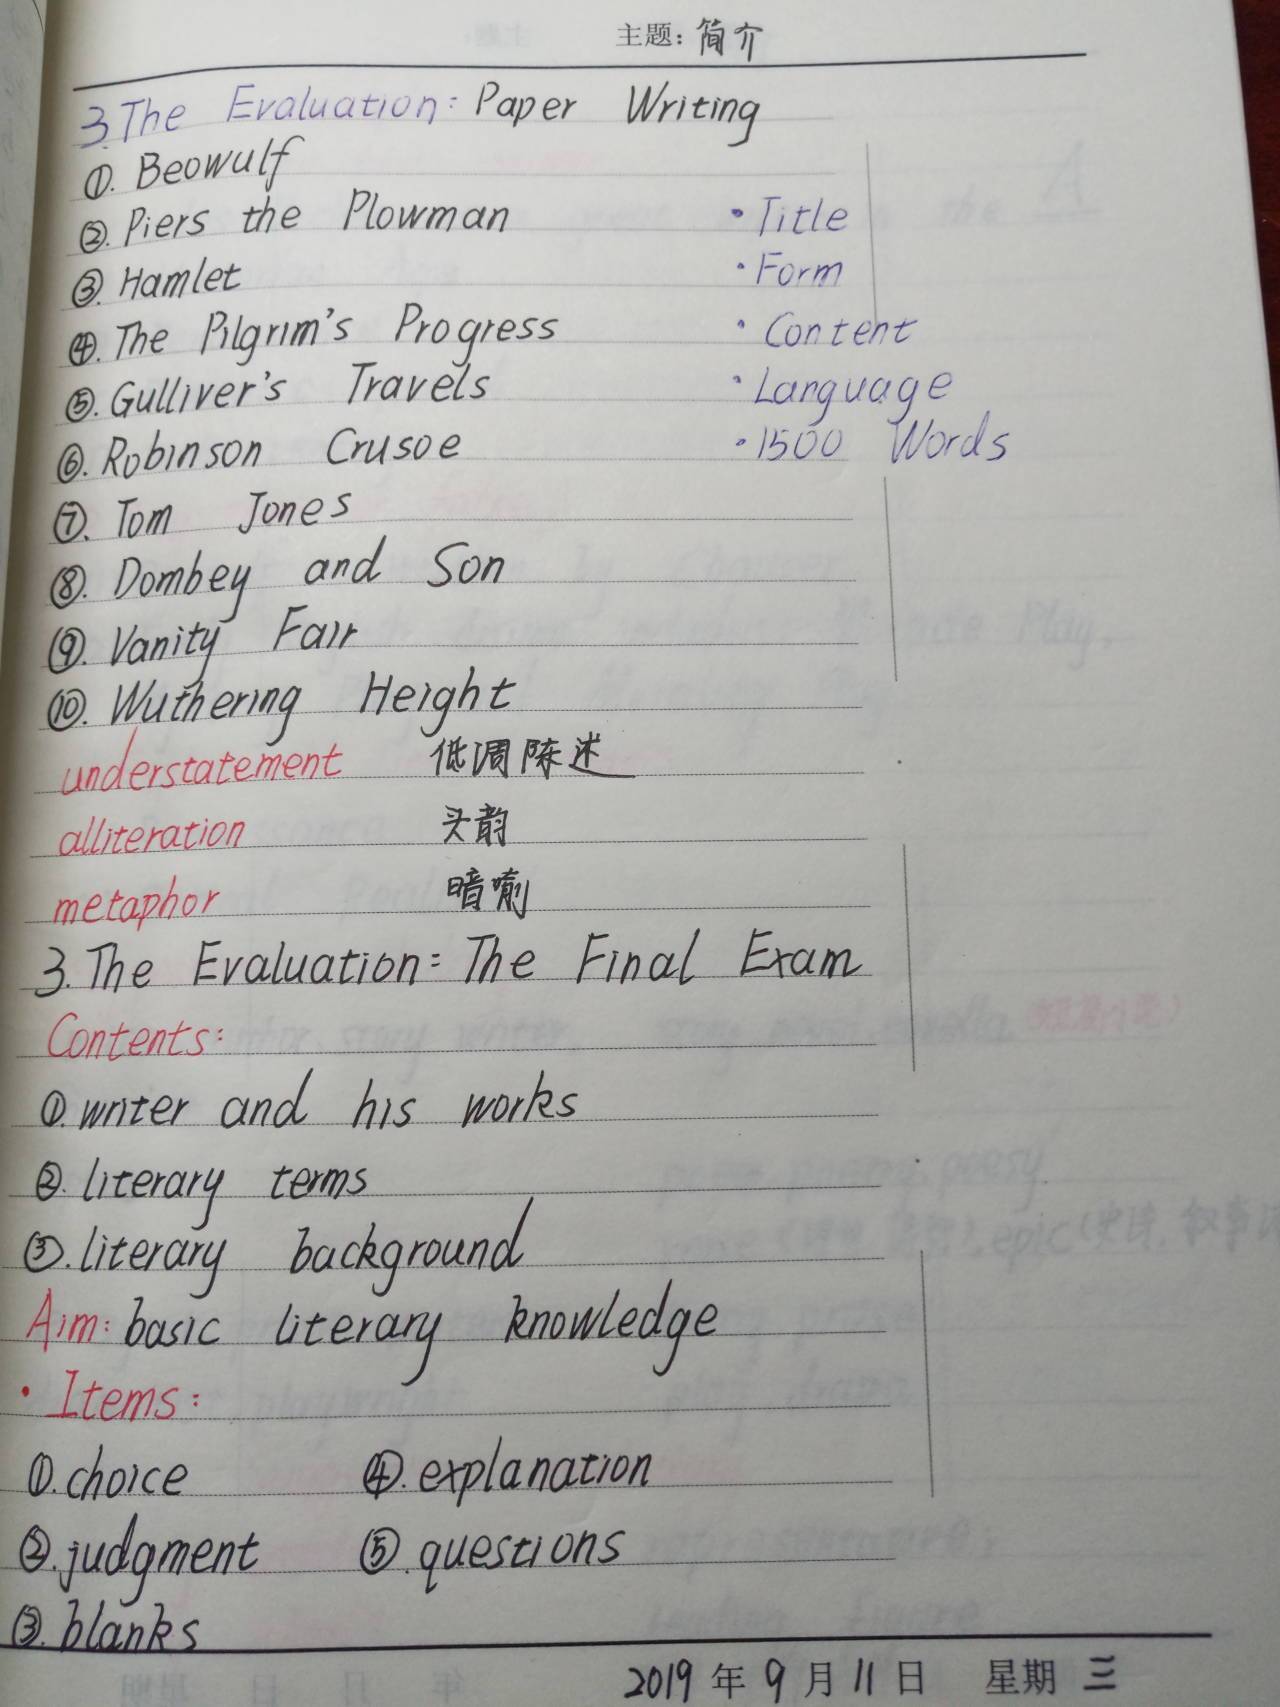 主题: 简介
3.The Evaluation: Paper Writing
①. Beowulf
②. Piers the Plowman
• Title
③. Hamlet
• Form
④. The Pilgrim's Progress
• Content
⑤. Gulliver's Travels
• Language
⑥. Robinson Crusoe
• 1500 Words
⑦. Tom Jones
⑧. Dombey and Son
⑨. Vanity Fair
⑩. Wuthering Height
understatement 低调陈述
alliteration 头韵
metaphor 暗喻
3.The Evaluation: The Final Exam
Contents:
①.writer and his works
②.literary terms
③.literary background
Aim: basic literary knowledge
• Items:
①.choice ④.explanation
②.judgment ⑤.questions
③.blanks
2019年9月11日 星期三